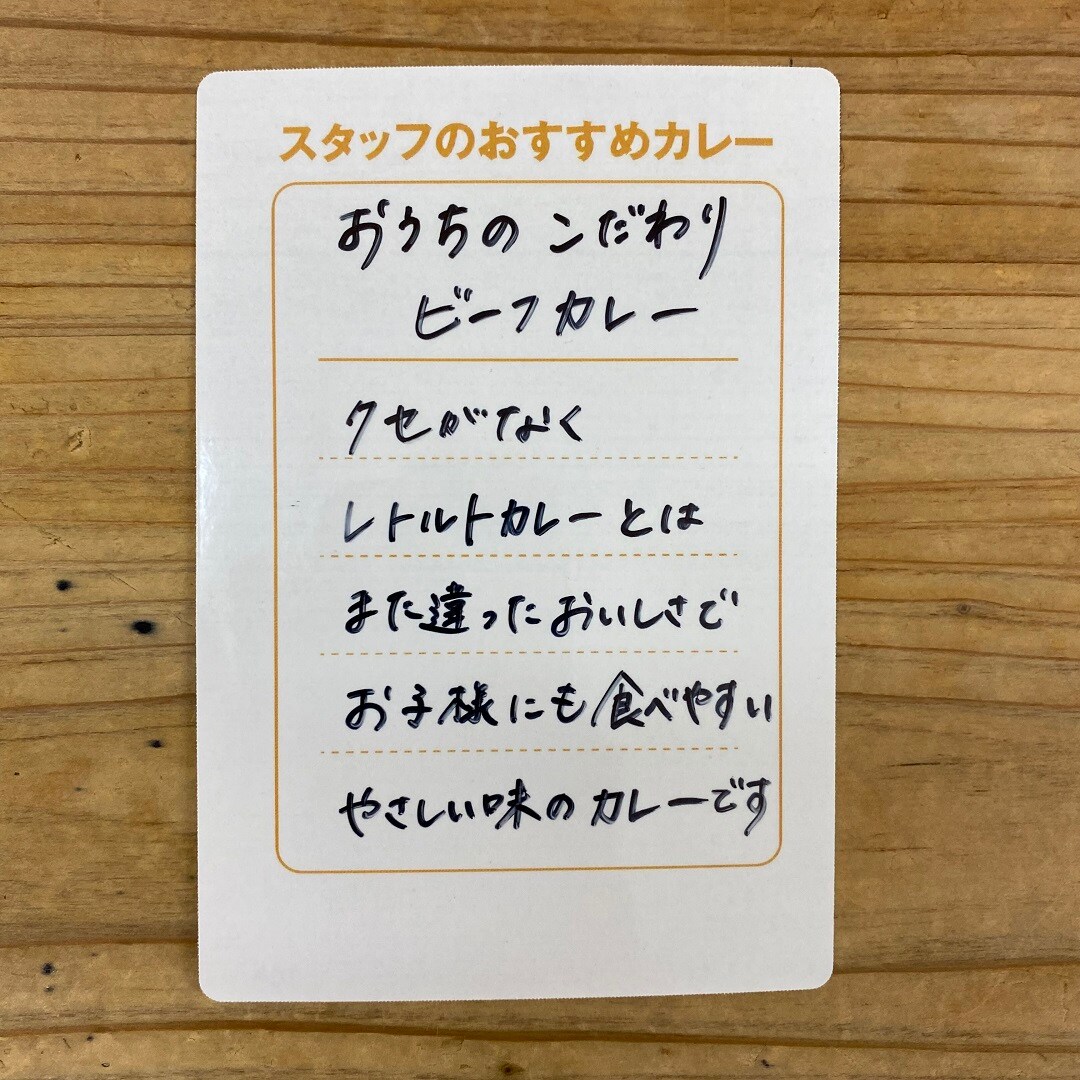 スタッフのおすすめカレー
おうちのこだわり
ビーフカレー
クセがなく
レトルトカレーとは
また違ったおいしさで
お子様にも食べやすい
やさしい味のカレーです